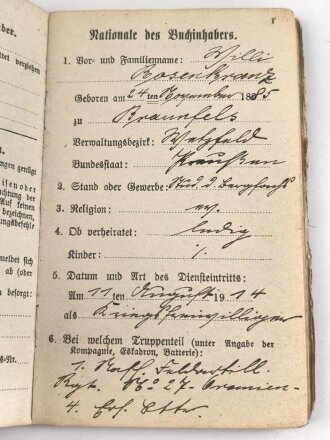 ber.
1
Nationale des Buchinhabers.
1. Vor- und Familienname: Willi
Rosenkranz
Geboren am 24ten November 1885
zu Braunfels
Verwaltungsbezirk:
Bundesstaat: Preußen
2. Stand oder Gewerbe: Stud. d. Bergfachs
3. Religion: ev.
4. Ob verheiratet: ledig
Kinder:
5. Datum und Art des Diensteintritts:
Am 11ten August 1914
als Kriegsfreiwilliger
6. Bei welchem Truppenteil (unter Angabe der
Kompagnie, Eskadron, Batterie):
1. Nass. Feldartill.
Rgt. No 27. Oranien-
4. Ers. Bttr.
verziehen
gen genügt
eisen oder
achtung der
Auf keinen
bezeichnen,
ungsbefehle
meldet sich
ab (oder
esorgt:
ß-Nr.